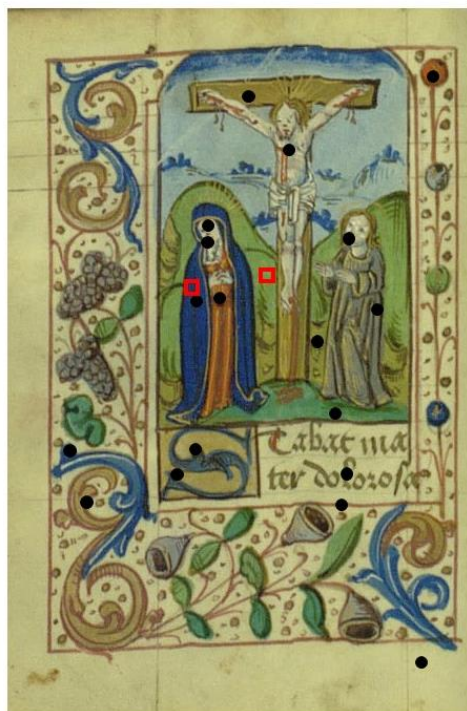 Stabat ma
ter dolorosa